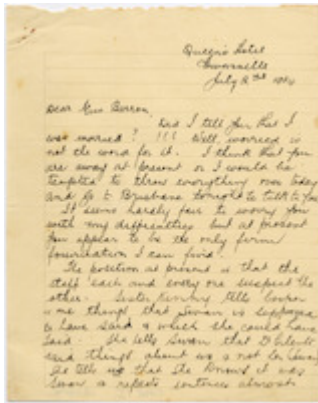 Queen's Hotel
Townsville
July 2nd
Dear Miss
Did I tell you that I
was worried? !!! Well, worried is
not the word for it. I think that you
are away at present or I would be
tempted to throw everything over today
and go to Brisbane tonight to talk to you
It seems hardly fair to worry you
with my difficulties but at present
you appear to be the only firm
foundation I can find.
The position at present is that the
staff each and every one suspect the
other. Sister Kenny tells
me things that is supposed
to have said & which she could have
said. She tells that
said things about us & not
tells me that she knows it was
sentences almost